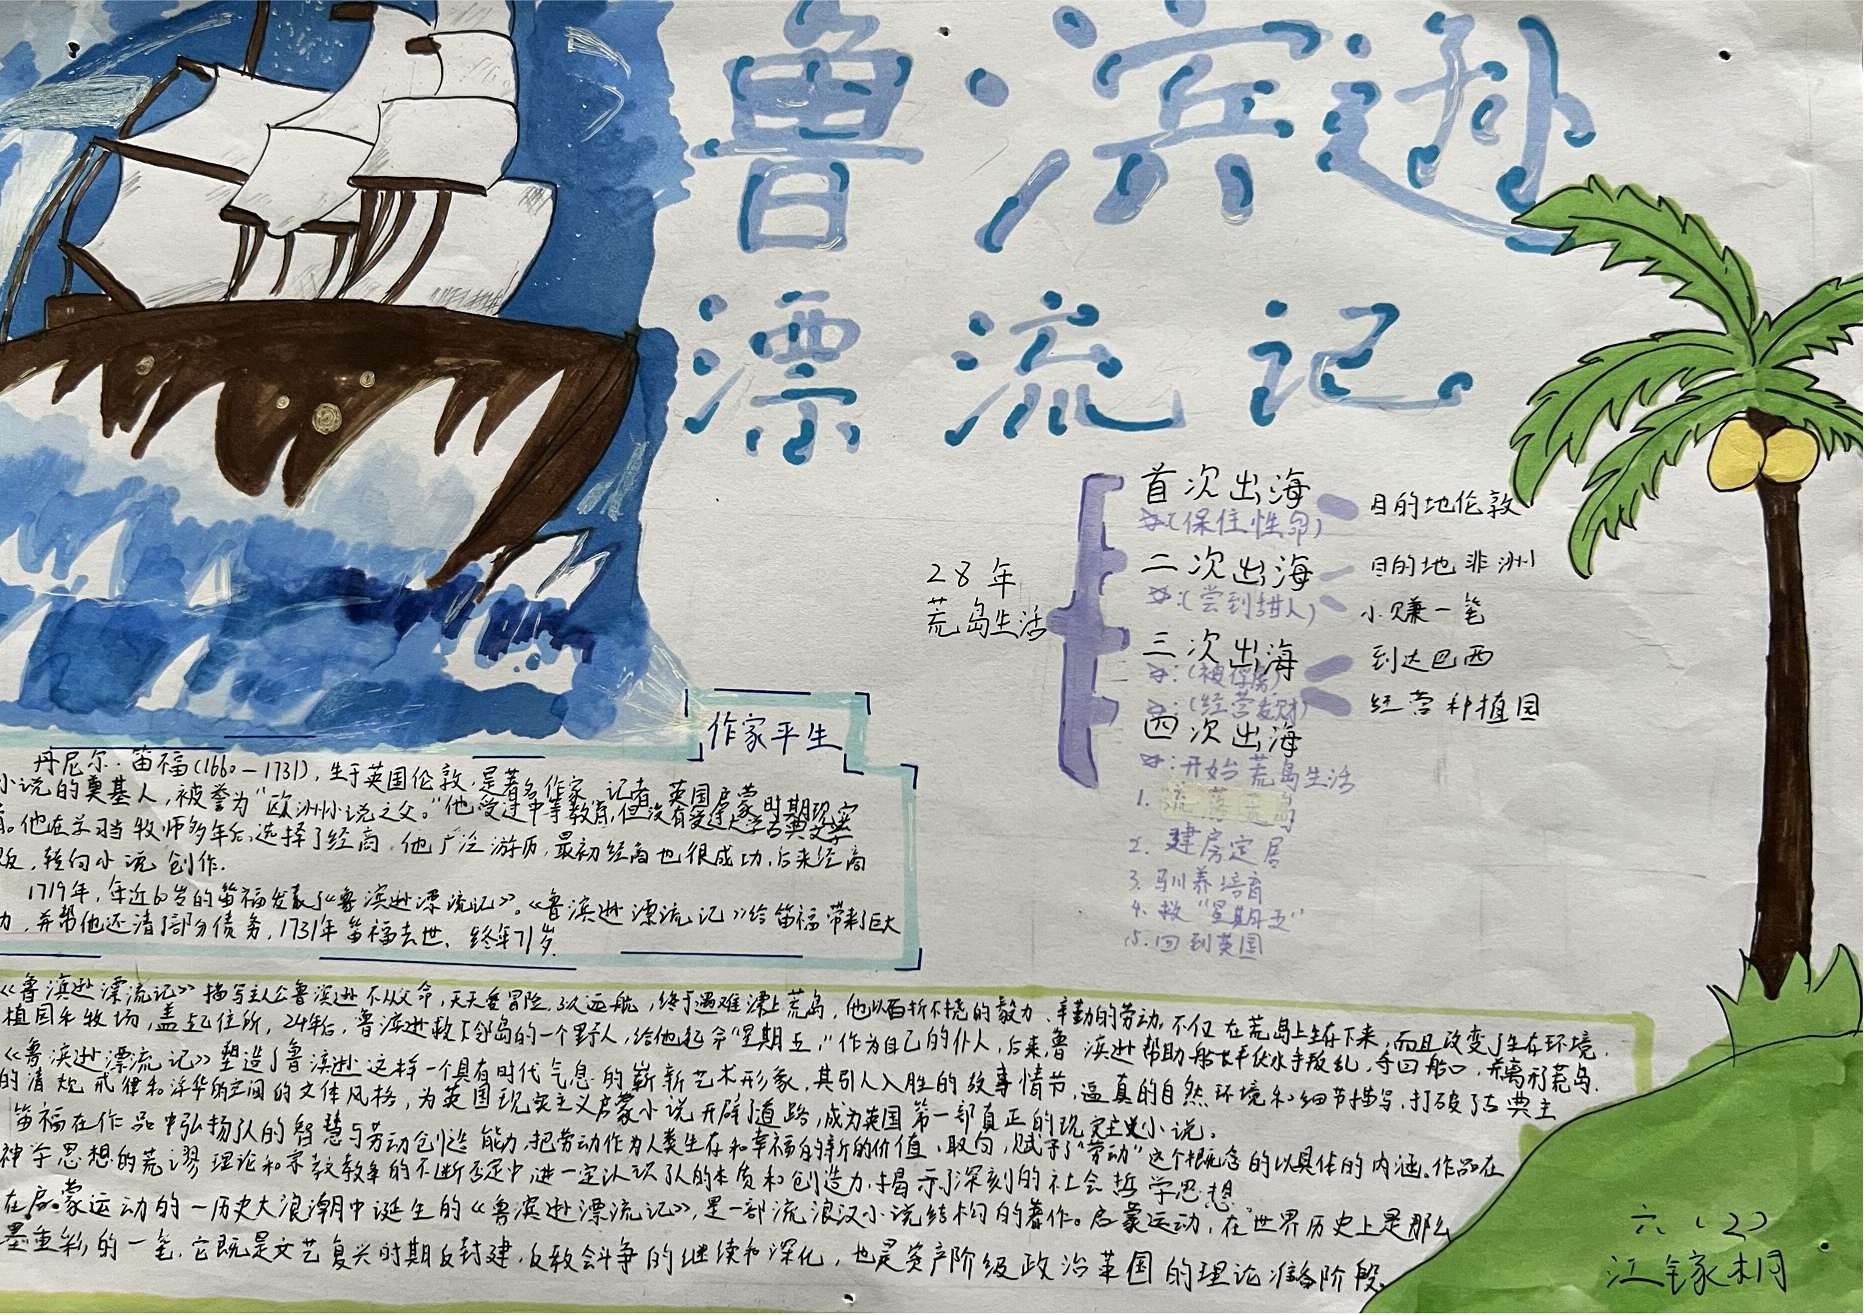 鲁滨逊
漂流记
28年
荒岛生活
首次出海
(保住性命)
目的地伦敦
二次出海
(尝到甜人)
目的地非洲
小赚一笔
三次出海
(被俘虏)
(经营发财)
到达巴西
经营种植园
四次出海
开始荒岛生活
1. 流落荒岛
2. 建房定居
3. 驯养培育
4. 救“星期五”
5. 回到英国
作家平生
丹尼尔·笛福(1660—1731),生于英国伦敦,是著名作家、记者,英国启蒙时期现实
小说的奠基人,被誉为“欧洲小说之父。”他受过中等教育,但没有受过大学古典文学
育。他在学习当牧师多年后,选择了经商,他广泛游历,最初经商也很成功,后来经商
败,转向小说创作.
1719年,年近60岁的笛福发表了《鲁滨逊漂流记》。《鲁滨逊漂流记》给笛福带来了巨大
力,并帮他还清了部分债务,1731年笛福去世、终年71岁.
《鲁滨逊漂流记》描写主人公鲁滨逊不从父命,天天爱冒险,3次远航,终于遇难漂上荒岛,他以百折不挠的毅力、辛勤的劳动,不仅在荒岛上生存下来,而且改变了生存环境.
植园和牧场,盖起住所,24年后,鲁滨逊救下邻岛的一个野人,给他起名“星期五,”作为自己的仆人,后来,鲁滨逊帮助船长平伏水手叛乱,夺回船口,并离开荒岛.
《鲁滨逊漂流记》塑造了鲁滨逊这样一个具有时代气息的崭新艺术形象,其引人入胜的故事情节,逼真的自然环境和细节描写,打破了古典主
的清规戒律和浮华的空间的文体风格,为英国现实主义启蒙小说开辟了道路,成为英国第一部真正的现实主义小说。
笛福在作品中弘扬了人的智慧与劳动创造能力,把劳动作为人类生存和幸福的新的价值、取向,赋予了“劳动”这个概念的以具体的内涵.作品在
神学思想的荒谬理论和宗教教条的不断否定中,进一定认识了人的本质和创造力,揭示了深刻的社会哲学思想.
在启蒙运动的一历史大浪潮中诞生的《鲁滨逊漂流记》,是一部流浪汉小说结构的著作。启蒙运动,在世界历史上是那么
墨重彩的一笔,它既是文艺复兴时期反封建,反教会斗争的继续和深化,也是资产阶级政治革国的理论准备阶段.
六(2)
江镓桐